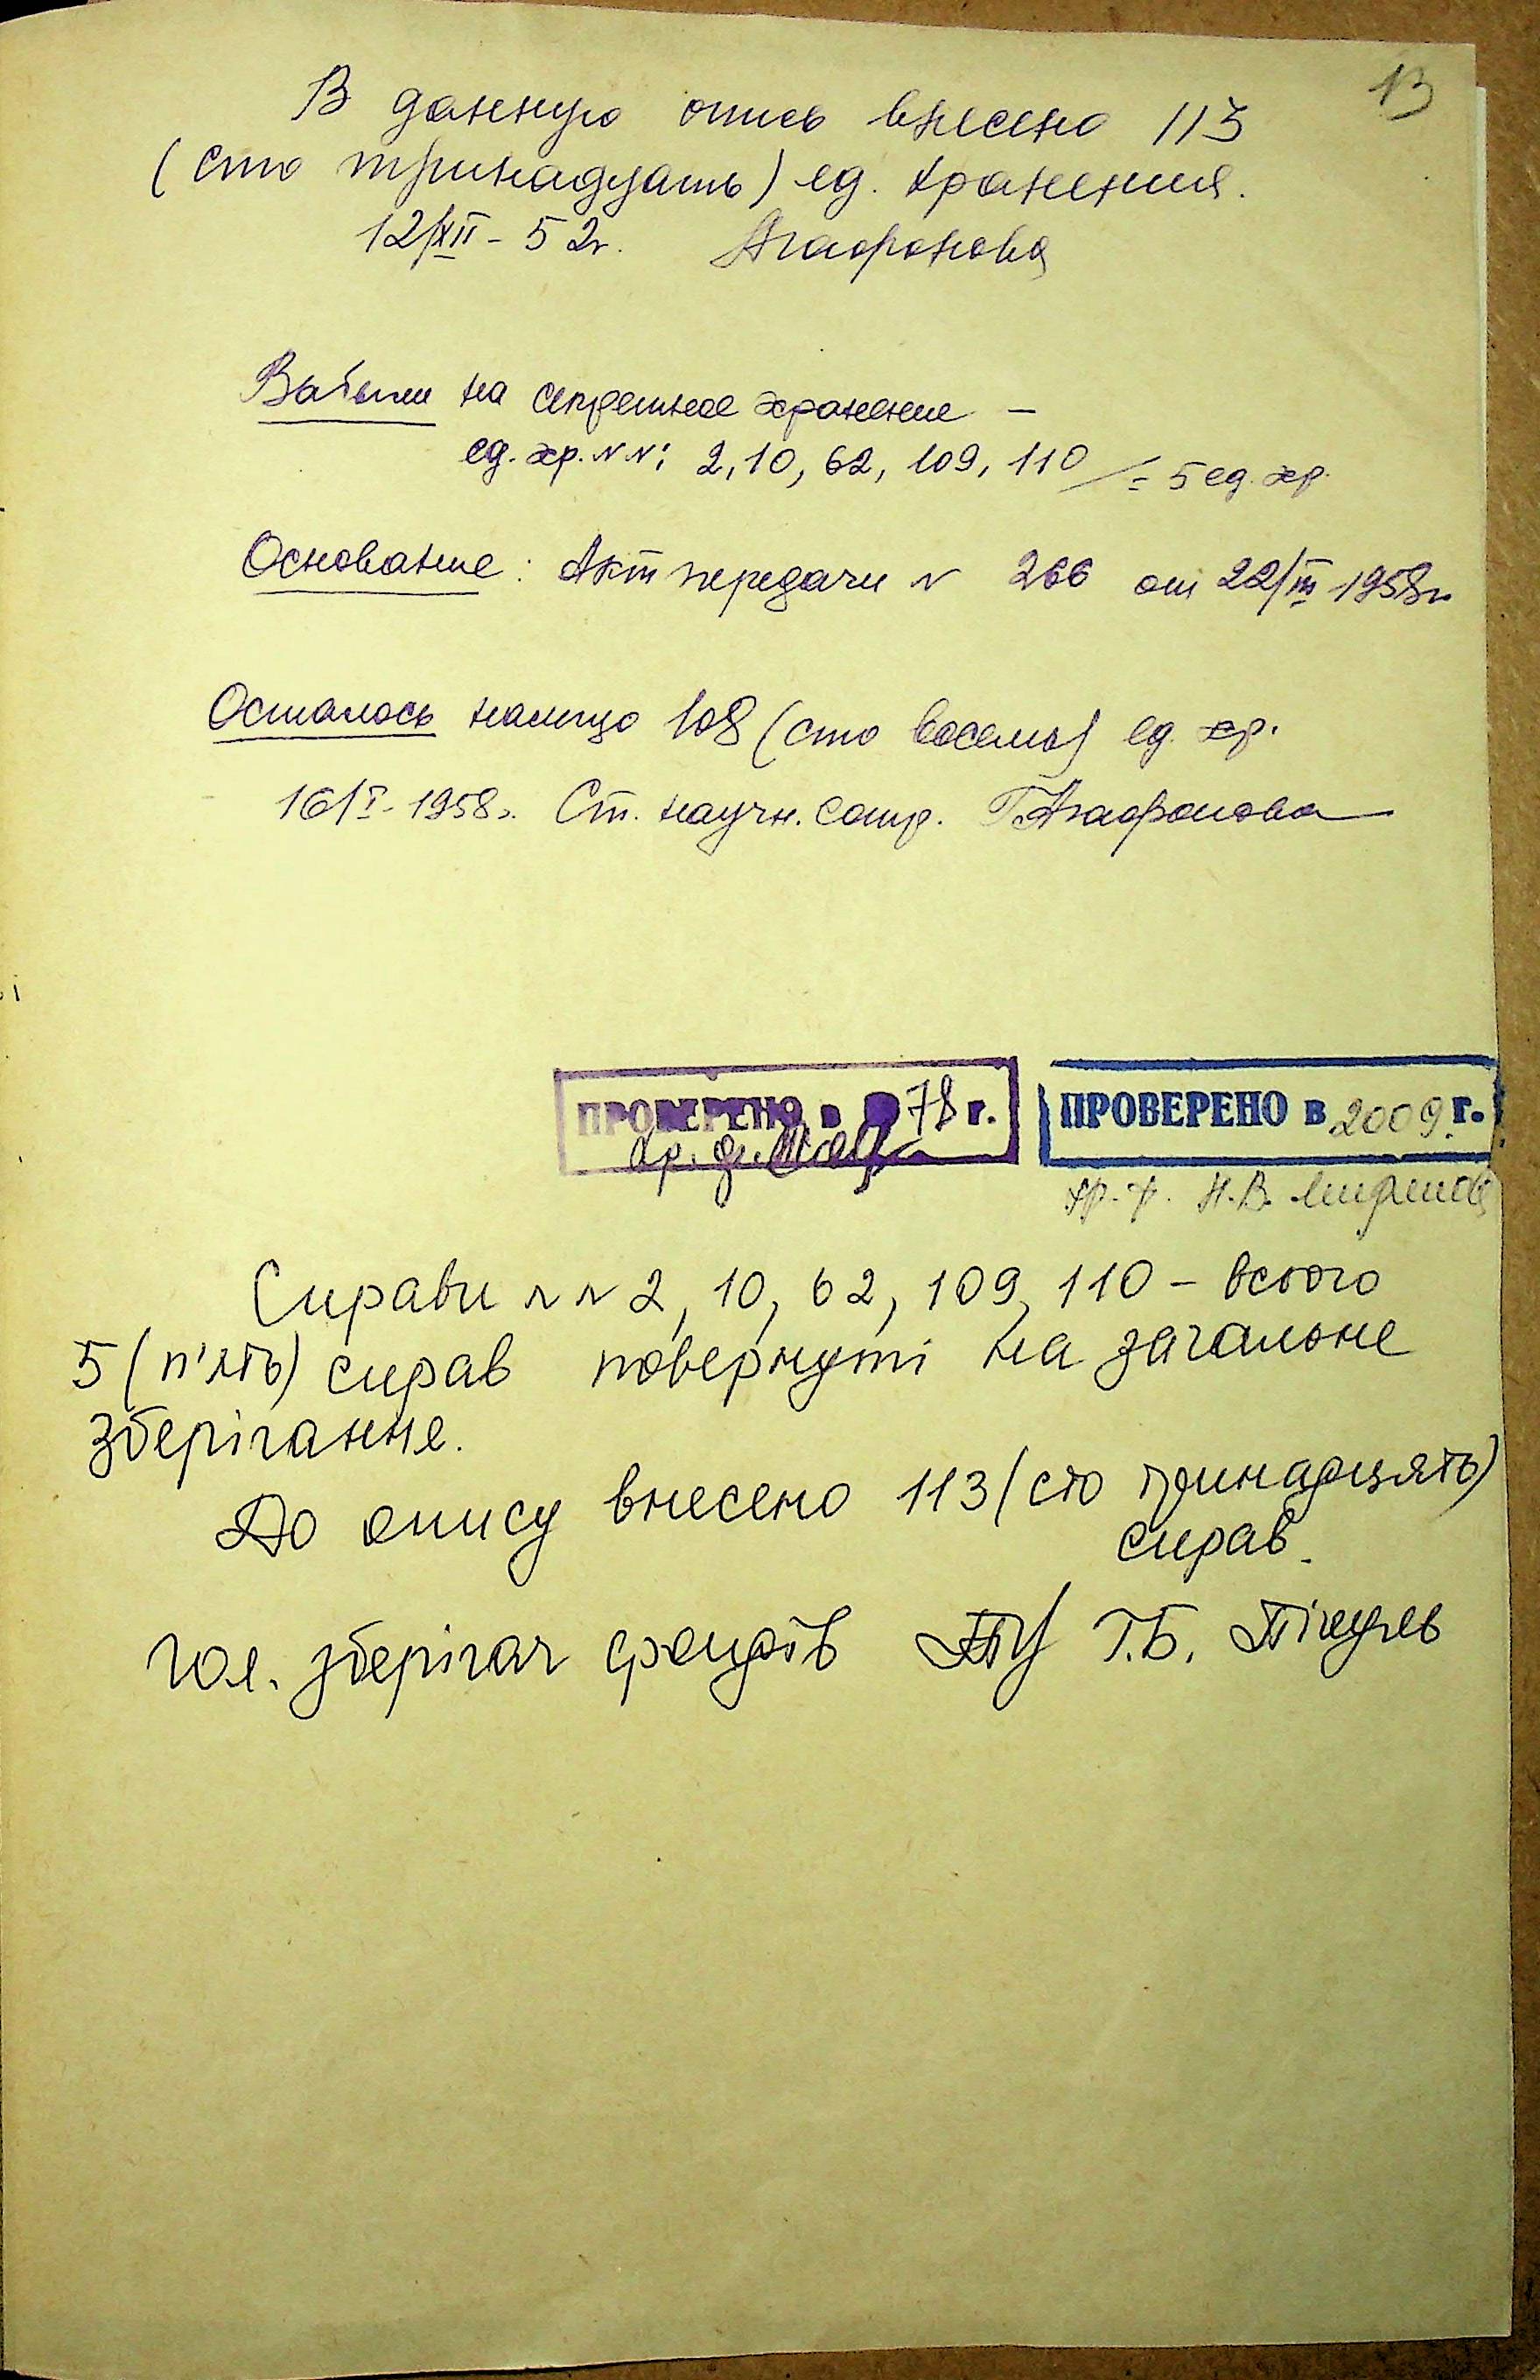 13
В данную опись внесено 113
(сто тринадцать) ед. хранения.
12/XII - 52г. Агафонова
Выбыли на секретное хранение –
ед. хр. NN: 2, 10, 62, 109, 110 /= 5 ед. хр.
Основание: Акт передачи N 266 от 22/III 1958г
Осталось налицо 108 (сто восемь) ед. хр.
16/I - 1958г. Ст. научн. сотр. ГАгафонова
ПРОВЕРЕНО в 78 г.
ПРОВЕРЕНО в 2009 г.
хр. ф.
хр. ф. Н.В.
Справи NN 2, 10, 62, 109, 110 – всього
5 (п'ять) справ повернуті на загальне
зберігання.
До опису внесено 113 (сто тринадцять)
справ.
Гол. зберігач фондів Г.Б.